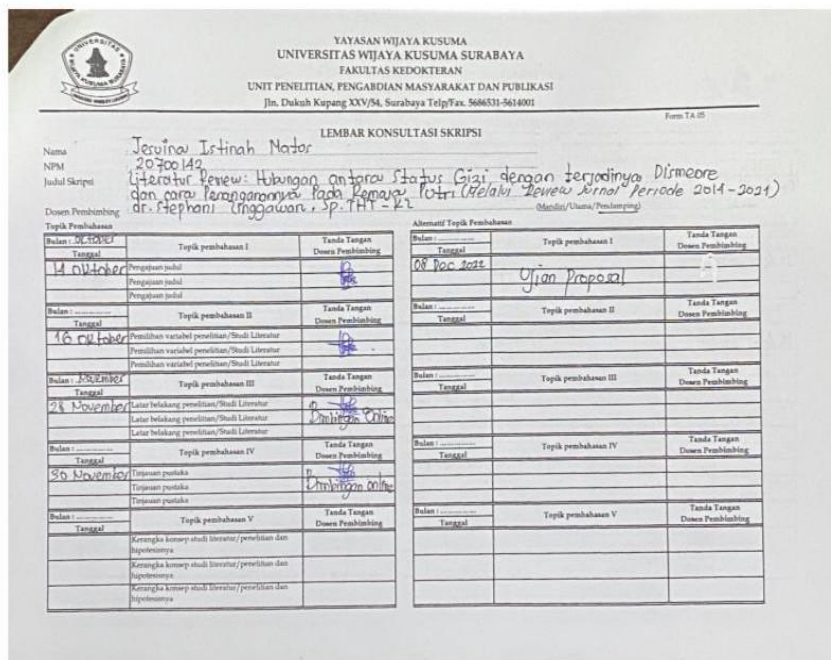 UNIVERSITAS WIJAYA KUSUMA SURABAYA
YAYASAN WIJAYA KUSUMA
UNIVERSITAS WIJAYA KUSUMA SURABAYA
FAKULTAS KEDOKTERAN
UNIT PENELITIAN, PENGABDIAN MASYARAKAT DAN PUBLIKASI
Jln. Dukuh Kupang XXV/54, Surabaya Telp/Fax. 5686531-5614001
Form TA-05
LEMBAR KONSULTASI SKRIPSI
Nama Jesvina Istinah Mator
NPM 20700142
Judul Skripsi Literatur Review: Hubungan antara Status Gizi dengan terjadinya Dismeore
dan cara Penanganannya Pada Remaja Putri (Melalui Review Jurnal Periode 2014-2021)
Dosen Pembimbing dr. Stephani Linggawan, Sp. THT-KL (Mandiri/Utama/Pendamping)
Topik Pembahasan
Bulan : Oktober Topik pembahasan I Tanda Tangan
Tanggal Dosen Pembimbing
Oktober Pengajuan judul
Pengajuan judul
Pengajuan judul
Bulan : Topik pembahasan II Tanda Tangan
Tanggal Dosen Pembimbing
16 Oktober Pemilihan variabel penelitian/Studi Literatur
Pemilihan variabel penelitian/Studi Literatur
Pemilihan variabel penelitian/Studi Literatur
Bulan : November Topik pembahasan III Tanda Tangan
Tanggal Dosen Pembimbing
28 November Latar belakang penelitian/Studi Literatur
Latar belakang penelitian/Studi Literatur Bimbingan Online
Latar belakang penelitian/Studi Literatur
Bulan : Topik pembahasan IV Tanda Tangan
Tanggal Dosen Pembimbing
30 November Tinjauan pustaka
Tinjauan pustaka Bimbingan online
Tinjauan pustaka
Bulan : Topik pembahasan V Tanda Tangan
Tanggal Dosen Pembimbing
Kerangka konsep studi literatur/penelitian dan
hipotesisnya
Kerangka konsep studi literatur/penelitian dan
hipotesisnya
Kerangka konsep studi literatur/penelitian dan
hipotesisnya
Alternatif Topik Pembahasan
Bulan : Topik pembahasan I Tanda Tangan
Tanggal Dosen Pembimbing
08 Dec 2022 Ujian Proposal
Bulan : Topik pembahasan II Tanda Tangan
Tanggal Dosen Pembimbing
Bulan : Topik pembahasan III Tanda Tangan
Tanggal Dosen Pembimbing
Bulan : Topik pembahasan IV Tanda Tangan
Tanggal Dosen Pembimbing
Bulan : Topik pembahasan V Tanda Tangan
Tanggal Dosen Pembimbing